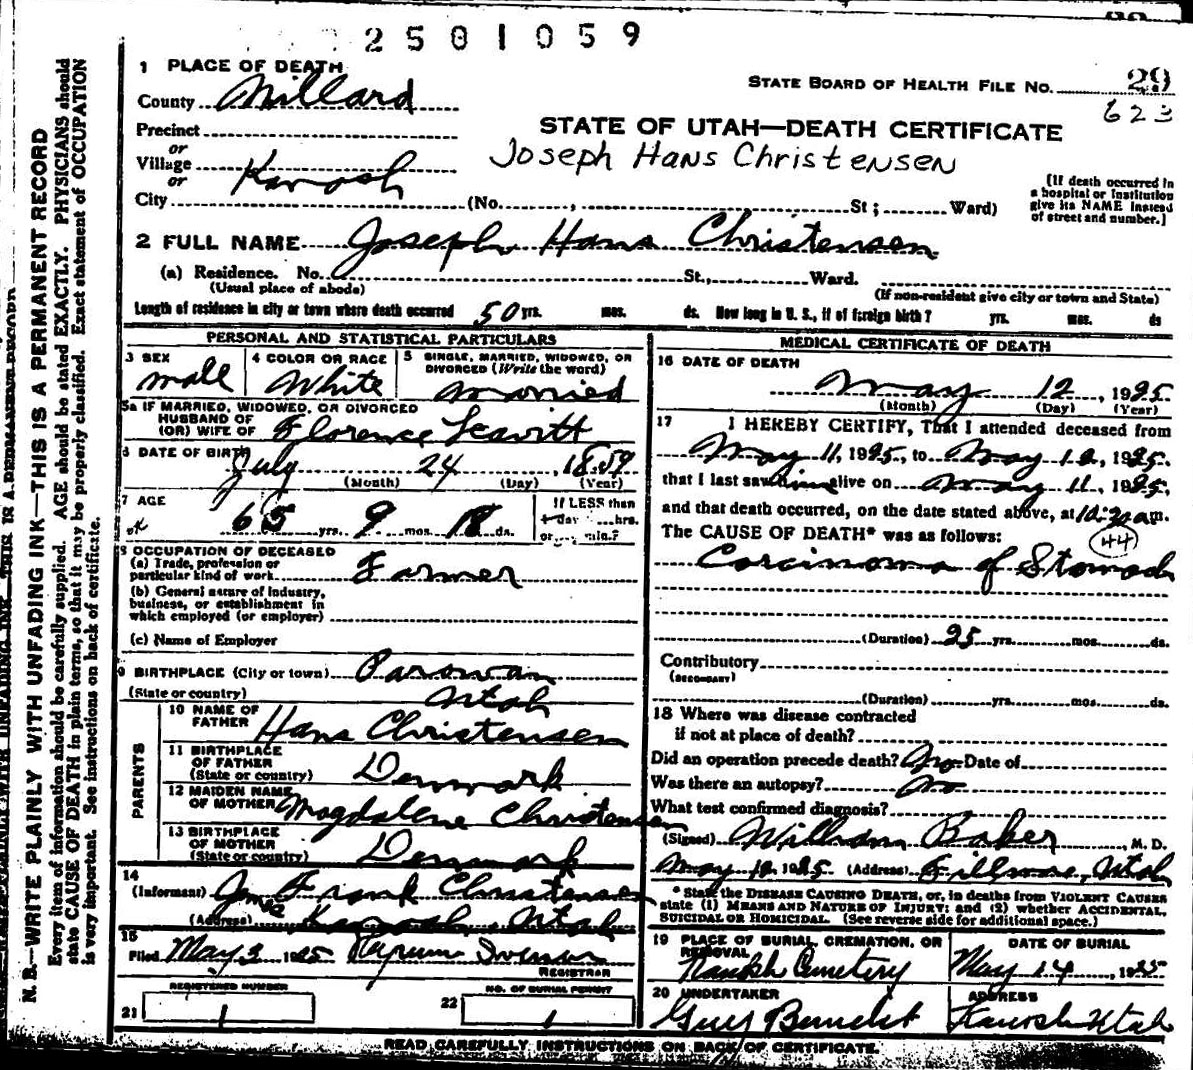 2501059
1 PLACE OF DEATH
STATE BOARD OF HEALTH FILE NO. 29
County Millard
623
Precinct
STATE OF UTAH—DEATH CERTIFICATE
or
Village Kanosh
Joseph Hans Christensen
or
City (No. , St; Ward)
[If death occurred in
a hospital or institution
give its NAME instead
of street and number.]
2 FULL NAME Joseph Hans Christensen
(a) Residence. No. St., Ward.
(Usual place of abode)
(If non-resident give city or town and State)
Length of residence in city or town where death occurred 50 yrs. mos. ds. How long in U. S., if of foreign birth? yrs. mos. ds
PERSONAL AND STATISTICAL PARTICULARS
3 SEX
male
4 COLOR OR RACE
White
5 SINGLE, MARRIED, WIDOWED, OR
DIVORCED (Write the word)
Married
5a IF MARRIED, WIDOWED, OR DIVORCED
HUSBAND OF
(OR) WIFE OF Florence Leavitt
6 DATE OF BIRTH July 24, 1859
(Month) (Day) (Year)
7 AGE
65 yrs. 9 mos. 18 ds.
If LESS than
1 day hrs.
or min.?
8 OCCUPATION OF DECEASED
(a) Trade, profession or
particular kind of work Farmer
(b) General nature of industry,
business, or establishment in
which employed (or employer)
(c) Name of Employer
9 BIRTHPLACE (City or town) Parowan
(State or country) Utah
PARENTS
10 NAME OF
FATHER Hans Christensen
11 BIRTHPLACE
OF FATHER
(State or country) Denmark
12 MAIDEN NAME
OF MOTHER Magdalene Christensen
13 BIRTHPLACE
OF MOTHER
(State or country) Denmark
14
(Informant) Frank Christensen
(Address) Kanosh, Utah
15
Filed May 3 1925
REGISTRAR
REGISTERED NUMBER
21 1
NO. OF BURIAL PERMIT
22 1
MEDICAL CERTIFICATE OF DEATH
16 DATE OF DEATH
May 12, 1925
(Month) (Day) (Year)
17 I HEREBY CERTIFY, That I attended deceased from
May 11, 1925, to May 12, 1925,
that I last saw him alive on May 11, 1925,
and that death occurred, on the date stated above, at am.
The CAUSE OF DEATH* was as follows:
44
Carcinoma of Stomach
(Duration) 25 yrs. mos. ds.
Contributory
(SECONDARY)
(Duration) yrs. mos. ds.
18 Where was disease contracted
if not at place of death?
Did an operation precede death? No Date of
Was there an autopsy? No
What test confirmed diagnosis?
(Signed) William Baker, M. D.
May 12 1925 (Address) Fillmore, Utah
* State the DISEASE CAUSING DEATH, or, in deaths from VIOLENT CAUSES
state (1) MEANS AND NATURE OF INJURY; and (2) whether ACCIDENTAL,
SUICIDAL OR HOMICIDAL. (See reverse side for additional space.)
19 PLACE OF BURIAL, CREMATION, OR
REMOVAL
Kanosh Cemetery
DATE OF BURIAL
May 14, 1925
20 UNDERTAKER
ADDRESS
Kanosh Utah
READ CAREFULLY INSTRUCTIONS ON BACK OF CERTIFICATE.
N. B.—WRITE PLAINLY WITH UNFADING INK—THIS IS A PERMANENT RECORD
Every item of information should be carefully supplied. AGE should be stated EXACTLY. PHYSICIANS should
state CAUSE OF DEATH in plain terms, so that it may be properly classified. Exact statement of OCCUPATION
is very important. See instructions on back of certificate.